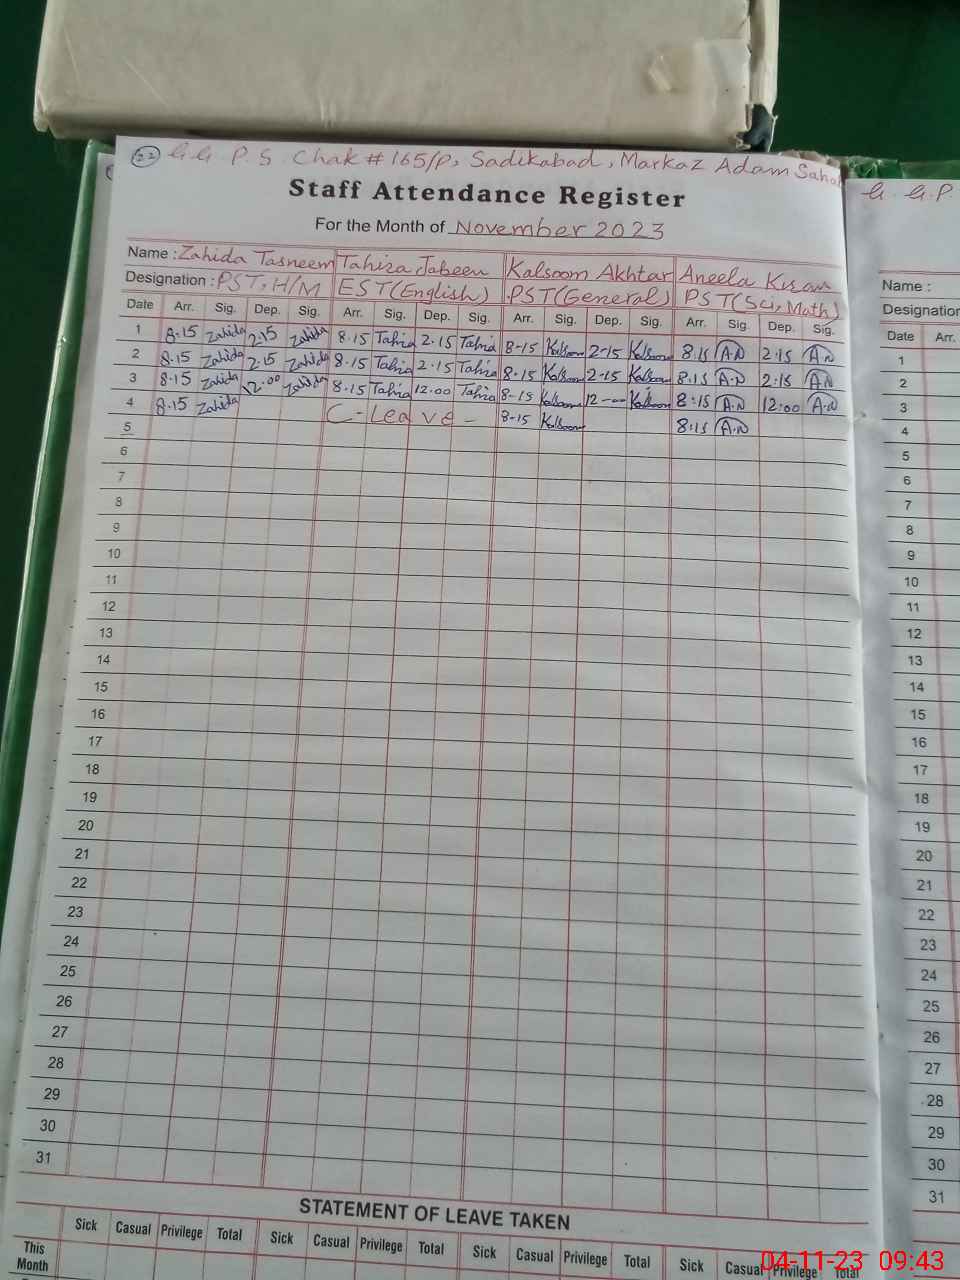 22 G.G. P.S. Chak # 165/P, Sadikabad, Markaz Adam Sahab
Staff Attendance Register
For the Month of November 2023
Name : Zahida Tasneem Tahira Jabeen Kalsoom Akhtar Aneela Kiran
Designation : PST, H/M EST(English) PST(General) PST(Sci, Math)
Date Arr. Sig. Dep. Sig. Arr. Sig. Dep. Sig. Arr. Sig. Dep. Sig. Arr. Sig. Dep. Sig.
1 8.15 Zahida 2.15 Zahida 8.15 Tahira 2.15 Tahira 8-15 Kalsoom 2-15 Kalsoom 8:15 A.N 2:15 A.N
2 8.15 Zahida 2.15 Zahida 8.15 Tahira 2.15 Tahira 8-15 Kalsoom 2-15 Kalsoom 8:15 A.N 2:15 A.N
3 8.15 Zahida 12.00 Zahida 8.15 Tahira 12.00 Tahira 8-15 Kalsoom 12-00 Kalsoom 8:15 A.N 12:00 A.N
4 8.15 Zahida C-Leave- 8-15 Kalsoom 8:15 A.N
5
6
7
8
9
10
11
12
13
14
15
16
17
18
19
20
21
22
23
24
25
26
27
28
29
30
31
STATEMENT OF LEAVE TAKEN
Sick Casual Privilege Total Sick Casual Privilege Total Sick Casual Privilege Total Sick Casual Privilege Total
This Month
G. G.P.
Name :
Designation
Date Arr.
1
2
3
4
5
6
7
8
9
10
11
12
13
14
15
16
17
18
19
20
21
22
23
24
25
26
27
28
29
30
31
04-11-23 09:43